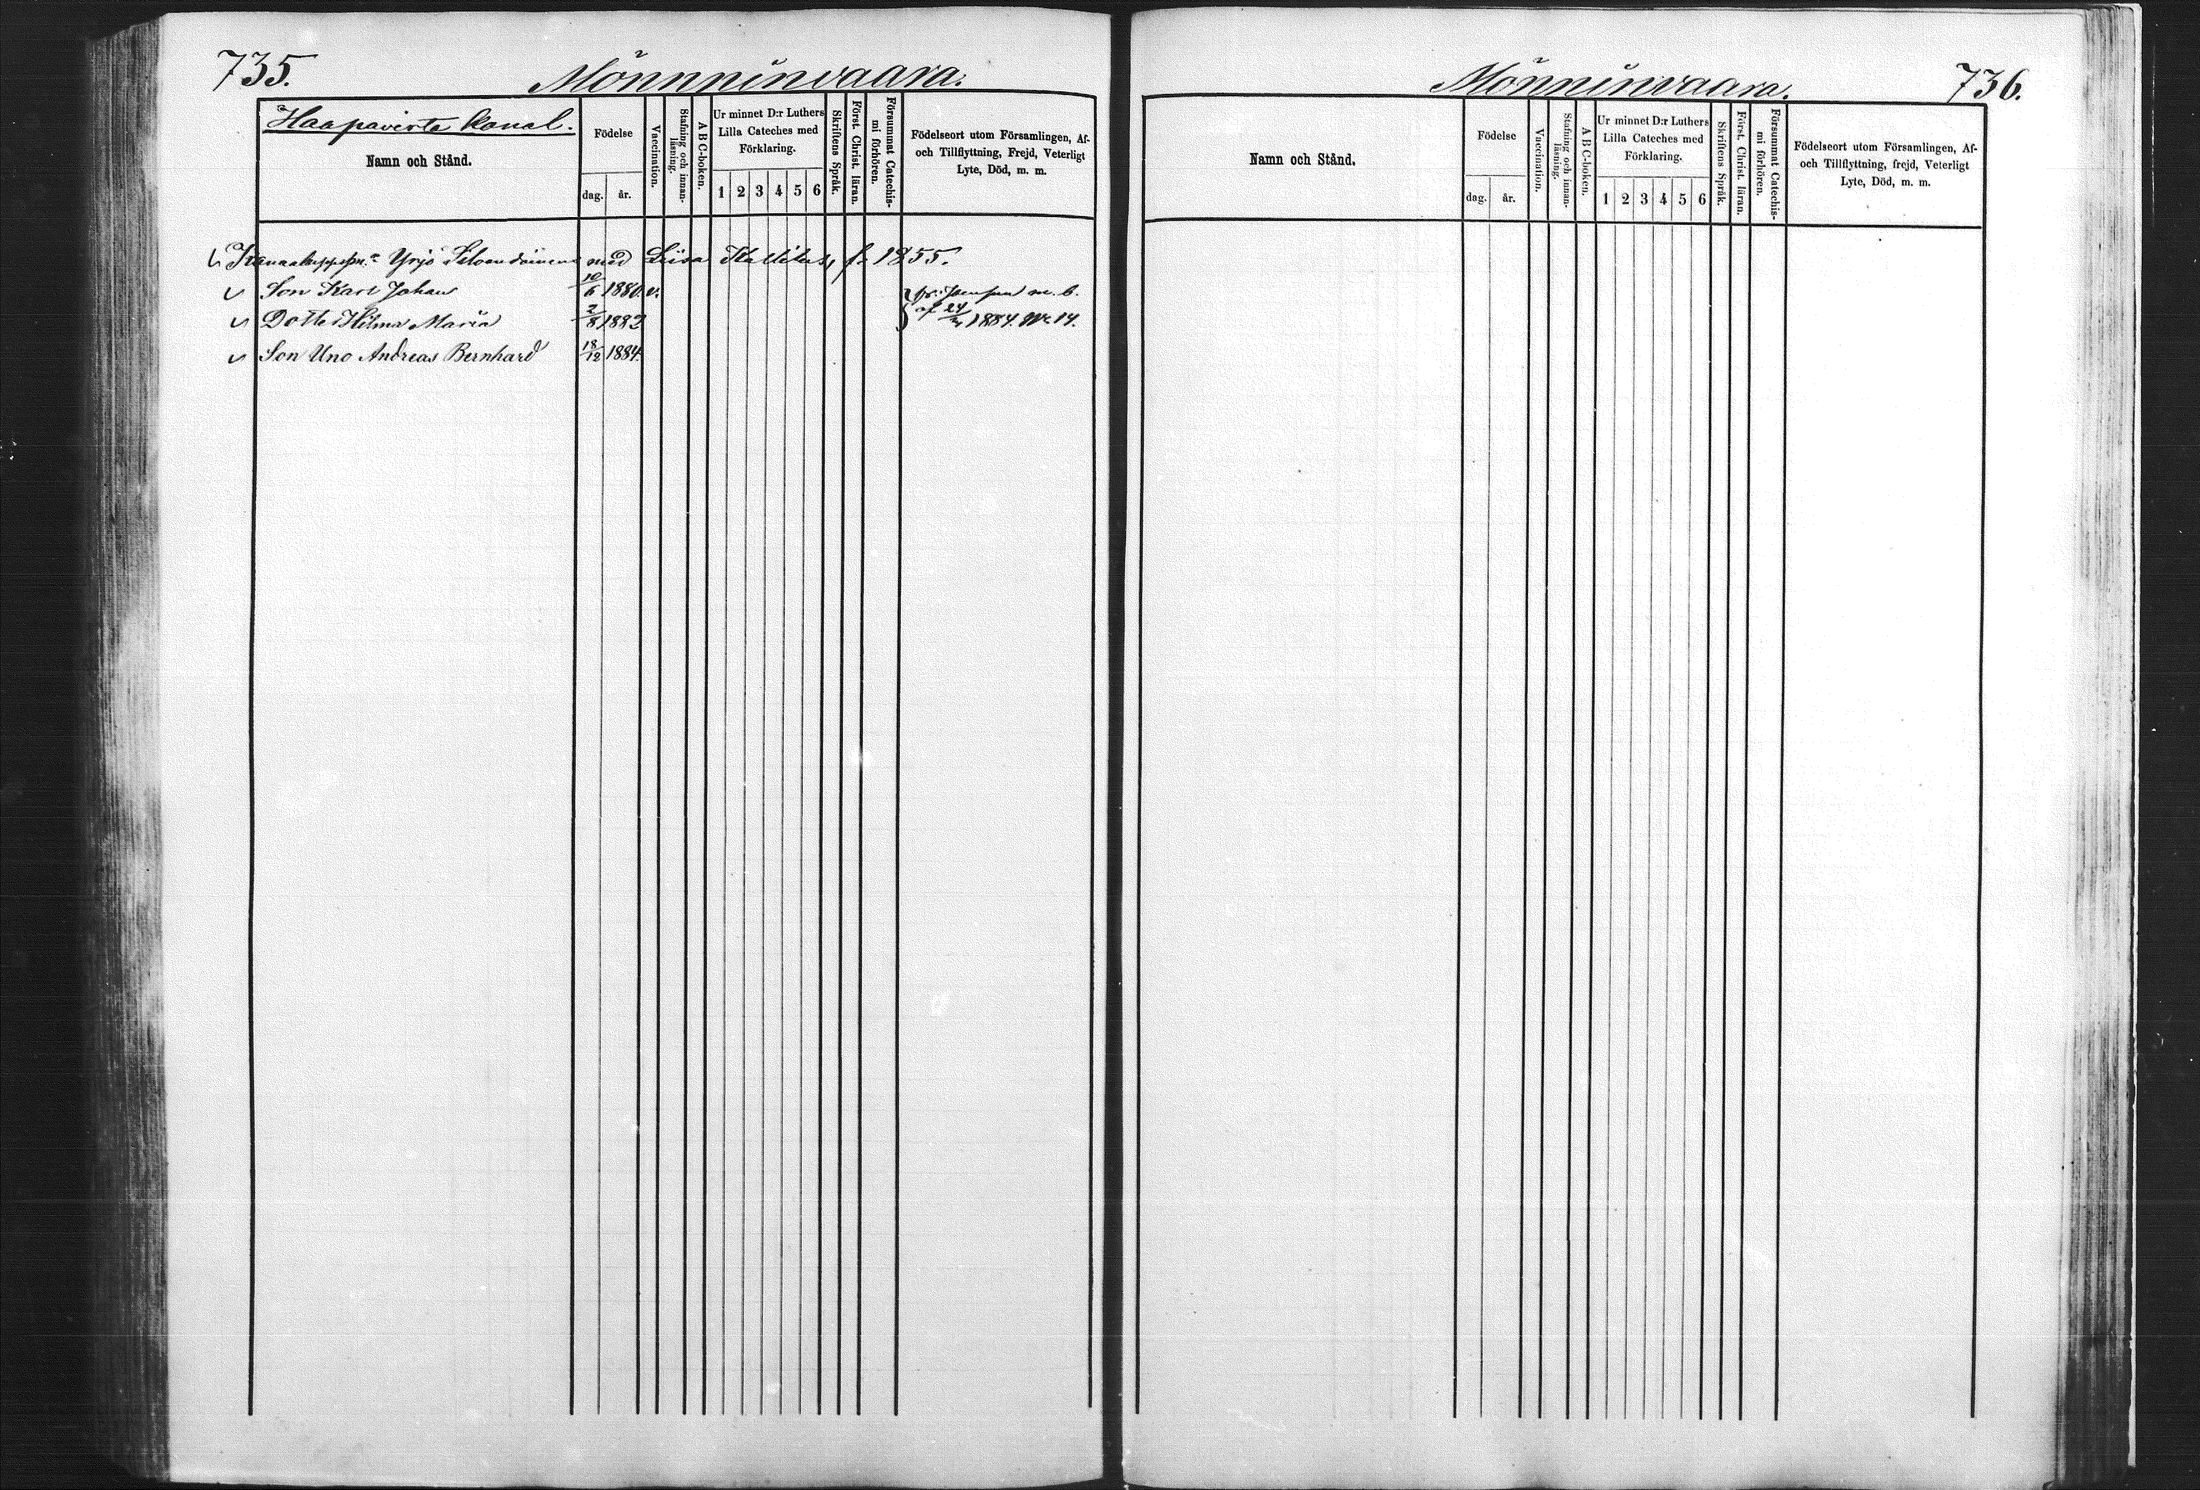 735.
Mönnninvaara.
Haapavirta kanal.
Namn och Stånd.
Födelse
dag.
år.
Vaccination.
Stafning och innan-
läsning.
A B C-boken.
Ur minnet D:r Luthers
Lilla Cateches med
Förklaring.
1 2 3 4 5 6
Skriftens Språk.
Först. Christ. läran.
Försummat Catechis-
mi förhören.
Födelseort utom Församlingen, Af-
och Tillflyttning, Frejd, Veterligt
Lyte, Död, m. m.
Yrjö med Liisa f. 1855.
Son Karl Johan 10/6 1880. v. m. b.
Dott. Hilma Maria 2/8 1882 af 1884. No 14.
Son Uno Andreas Bernhard 18/12 1884.
Mönninvaara.
736.
Namn och Stånd.
Födelse
dag.
år.
Vaccination.
Stafning och innan-
läsning.
A B C-boken.
Ur minnet D:r Luthers
Lilla Cateches med
Förklaring.
1 2 3 4 5 6
Skriftens Språk.
Först. Christ. läran.
Försummat Catechis-
mi förhören.
Födelseort utom Församlingen, Af-
och Tillflyttning, frejd, Veterligt
Lyte, Död, m. m.